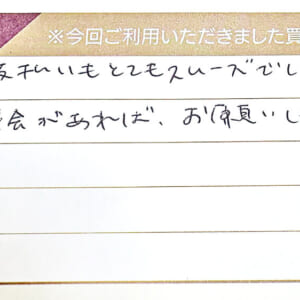 ※今回ご利用いただきました買
支払いもとてもスムーズでし
会があれば、お願いし